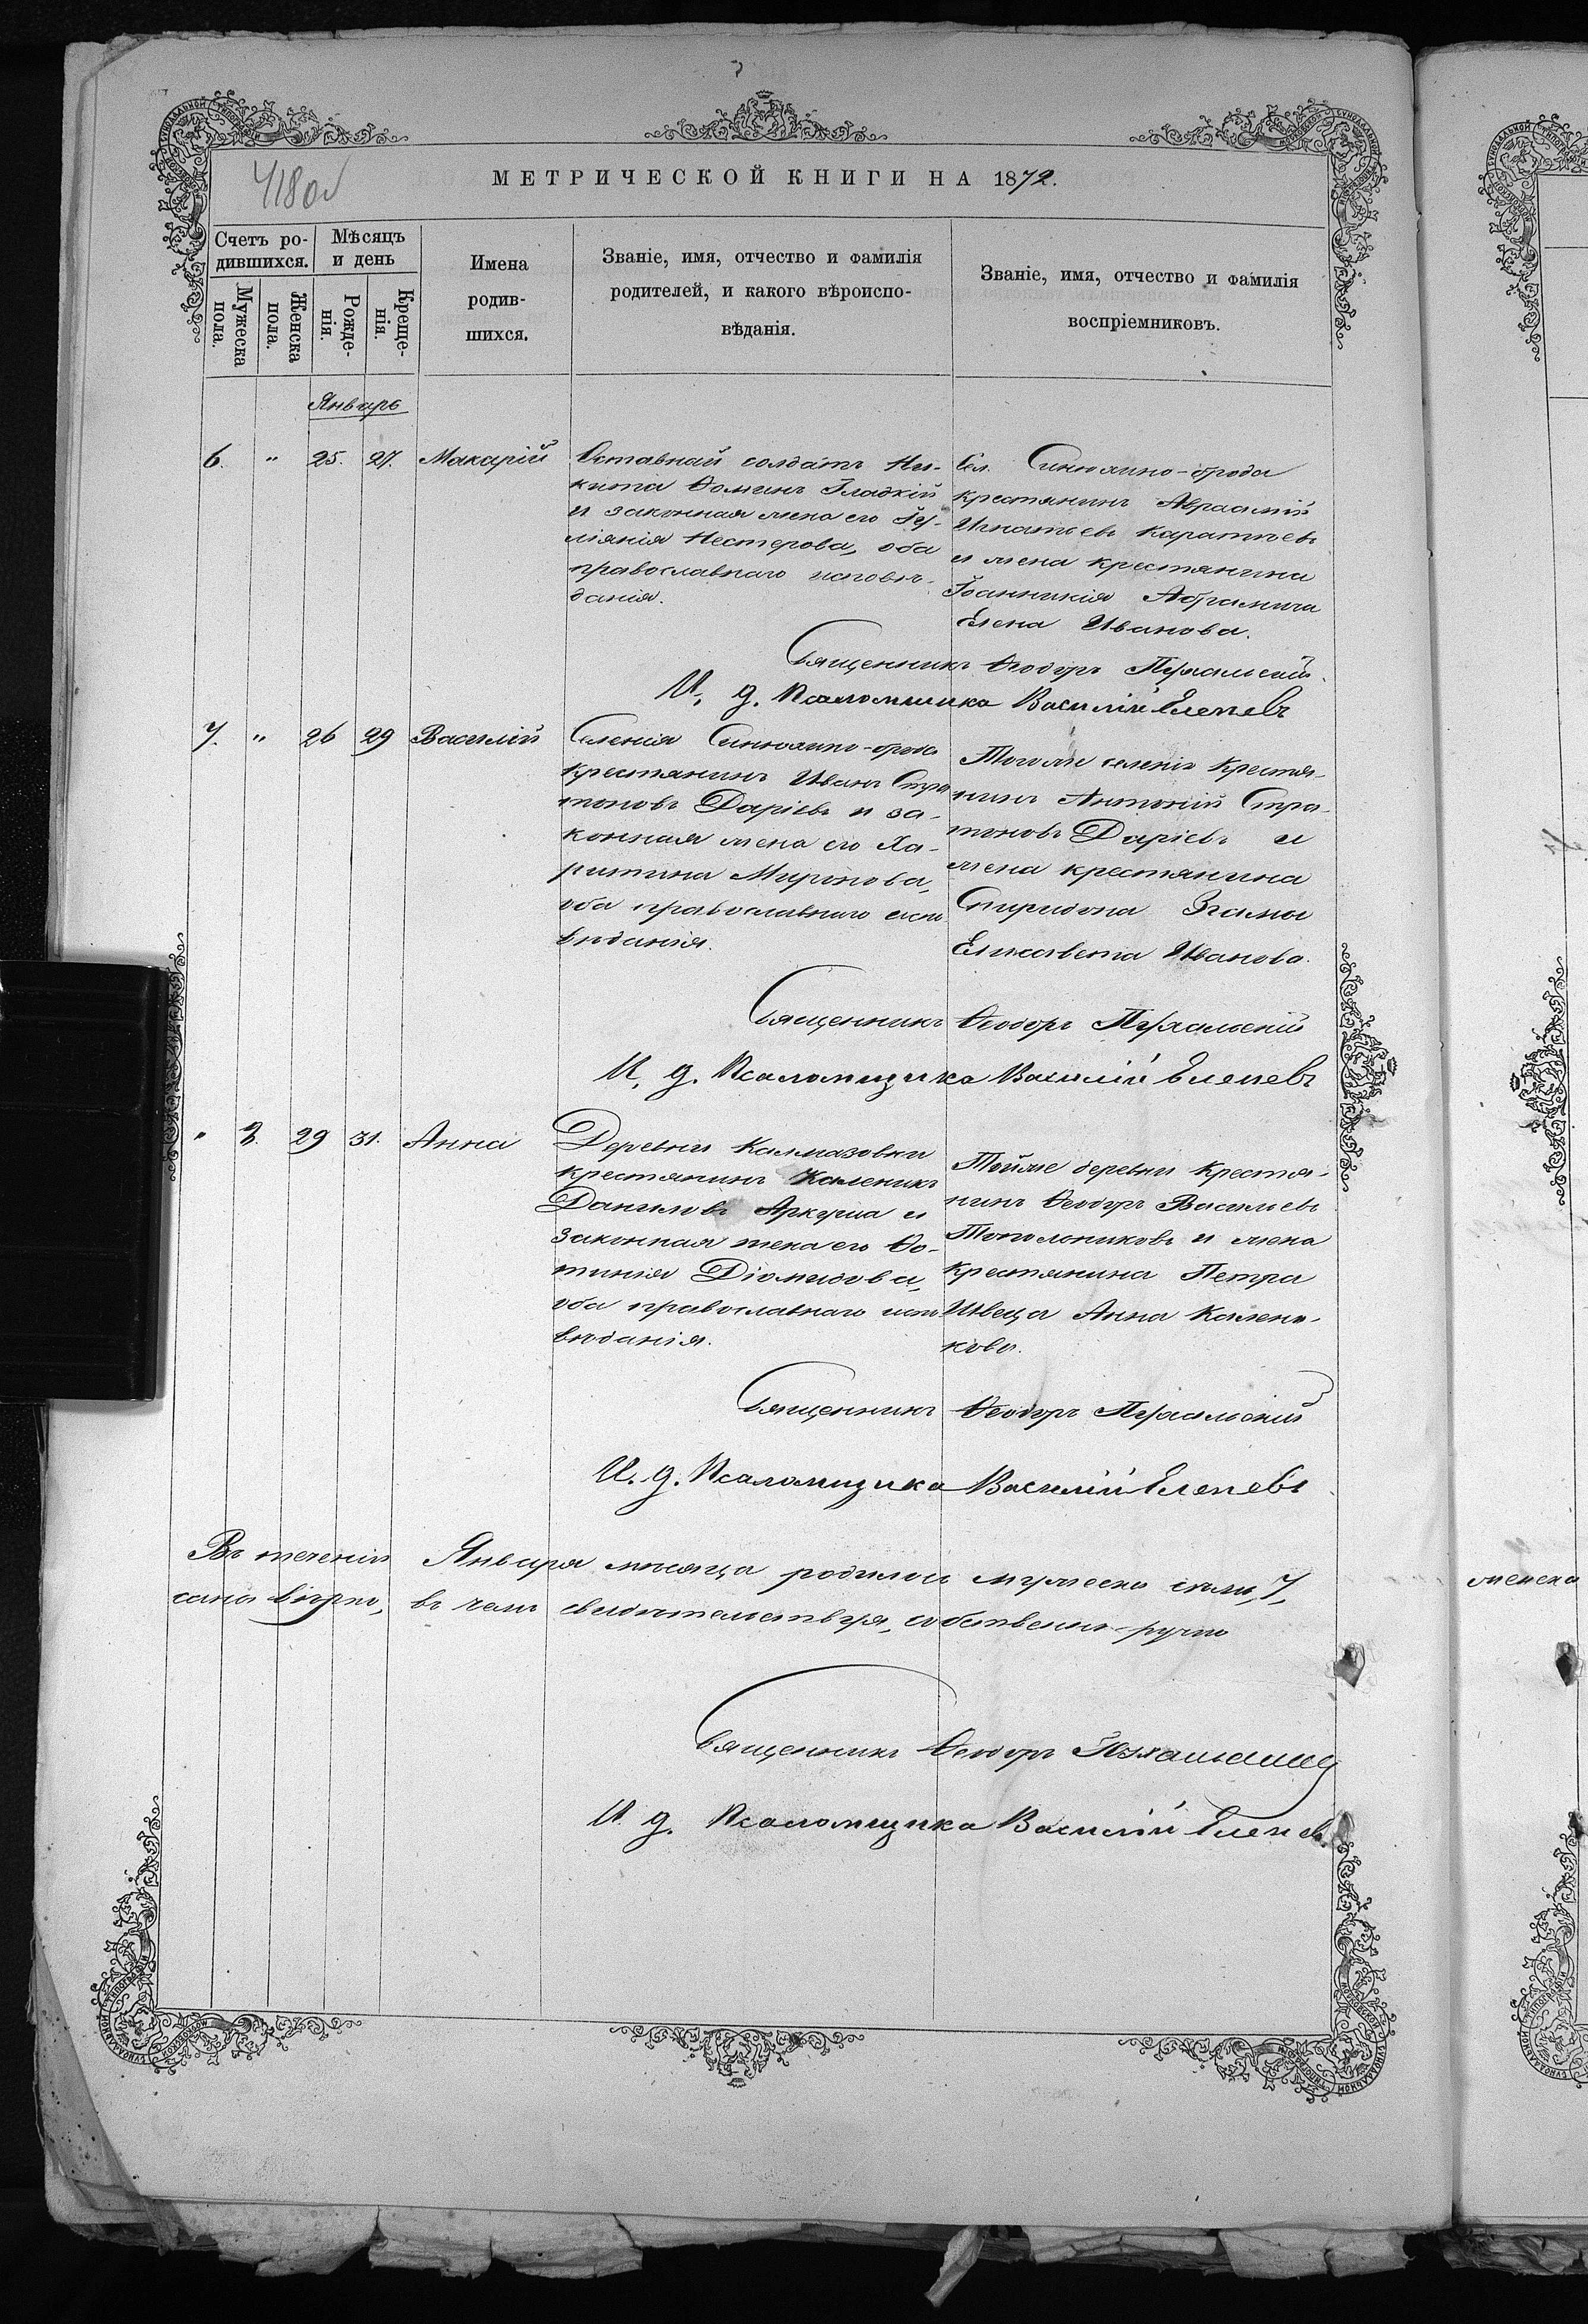 418об
МЕТРИЧЕСКОЙ КНИГИ НА 1872.
Счетъ ро-
дившихся.
Мѣсяцъ
и день
Имена
родив-
шихся.
Званіе, имя, отчество и фамилія
родителей, и какого вѣроиспо-
вѣданія.
Званіе, имя, отчество и фамилія
воспріемниковъ.
Мужеска
пола.
Женска
пола.
Рожде-
нія.
Креще-
нія.
Январь
6. " 25. 27. Макарій
Отставной солдатъ Ни-
кита Ѳоминъ Гладкій
и законная жена его Іу-
ліянія Нестерова, оба
православнаго исповѣ-
данія.
Сел. Синюхино-брода
крестянинъ Авраамій
Игнатьевъ
и жена крестянина
Іоанникія Абрамича
Елена Иванова.
Священникъ Ѳеодоръ
И. д. Псаломщика Василій Еленевъ
7. " 26 29 Василій
Селенія Синюхино-брода
крестянинъ Иванъ Стра-
тоновъ Даріевъ и за-
конная жена его Ха-
ритина Миронова,
оба православнаго испо-
вѣданія.
Тогоже селенія крестя-
нинъ Антоній Стра-
тоновъ Даріевъ и
жена крестянина
Спиридона
Елисавета Иванова.
Священникъ Ѳеодоръ
И. д. Псаломщика Василій Еленевъ
" 3. 29 31. Анна
Деревни Калмазовки
крестянинъ Каленикъ
Даниловъ Аркуша и
законная жена его Ѳо-
тинія Діомидова,
оба православнаго испо-
вѣданія.
Тойже деревни крестя-
нинъ Ѳеодоръ Васильевъ
Топольниковъ и жена
крестянина Петра
Швеца Анна Калени-
кова.
Священникъ Ѳеодоръ
И. д. Псаломщика Василій Еленевъ
Въ теченіи Января мѣсяца родилось мужеска 7,
вѣрно, въ чемъ свидѣтельствуя, собственно-ручно
Священникъ Ѳеодоръ
И. д. Псаломщика Василій Еленевъ
женска